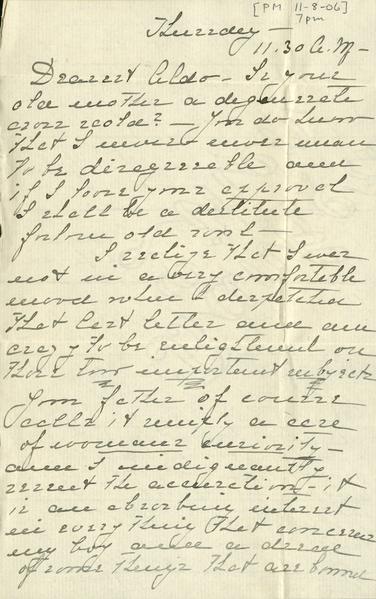 [PM 11-8-06]
7pm
Thursday —
11.30 A.M —
Dearest Aldo — Is your
old mother a degenerate
cross scold? — You do know
that I never - never mean
to be disagreeable and
if I lose your approval
I shall be a destitute
forlorn old soul —
I realize that I was
not in a very comfortable
mood when I despatched
that last letter and am
crazy to be enlightened on
those two important subjects
Your father of course
calls it simply a case
of womans curiosity —
and I indignantly
resent the accusation - it
is an absorbing interest
in every thing that concerns
my boy and a dread
of some things that are bound